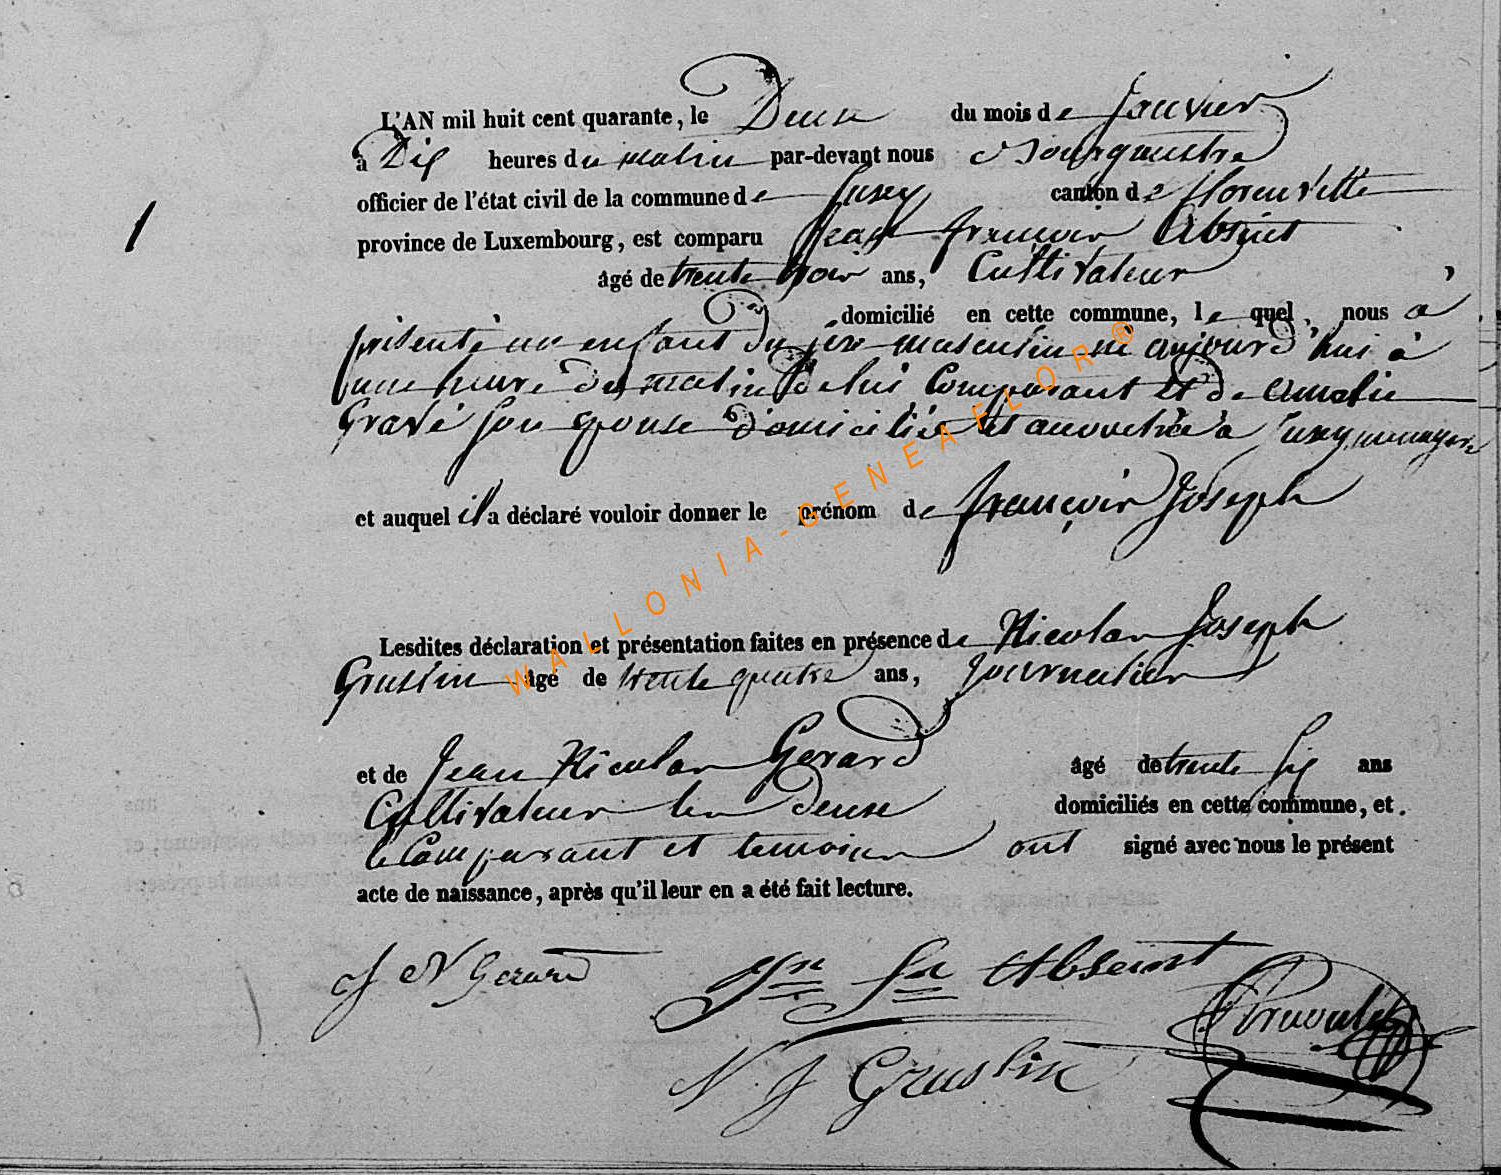 L'AN mil huit cent quarante, le Deux du mois de Janvier
à Dix heures du matin par-devant nous Bourgmestre
officier de l'état civil de la commune de Jusey canton de florenville
province de Luxembourg, est comparu Jean françois Absint
âgé de trente trois ans, Cultivateur
domicilié en cette commune, le quel nous à
présenté un enfant du sexe masculin né aujourd'hui à
une heure du matin de lui Comparant et de amelie
Gravé son epouse domiciliée à Jusey, menagere
et auquel il a déclaré vouloir donner le prénom de françois Joseph
1
Lesdites déclaration et présentation faites en présence de Nicolas Joseph
Gruslin âgé de trente quatre ans, journalier
et de Jean Nicolas Gerard âgé de trente six ans
Cultivateur les deux domiciliés en cette commune, et
le Comparant et temoins ont signé avec nous le présent
acte de naissance, après qu'il leur en a été fait lecture.
J N Gerard
Jn fs Abseint
N. J Gruslin
WALLONIA-GENEAFLOR®